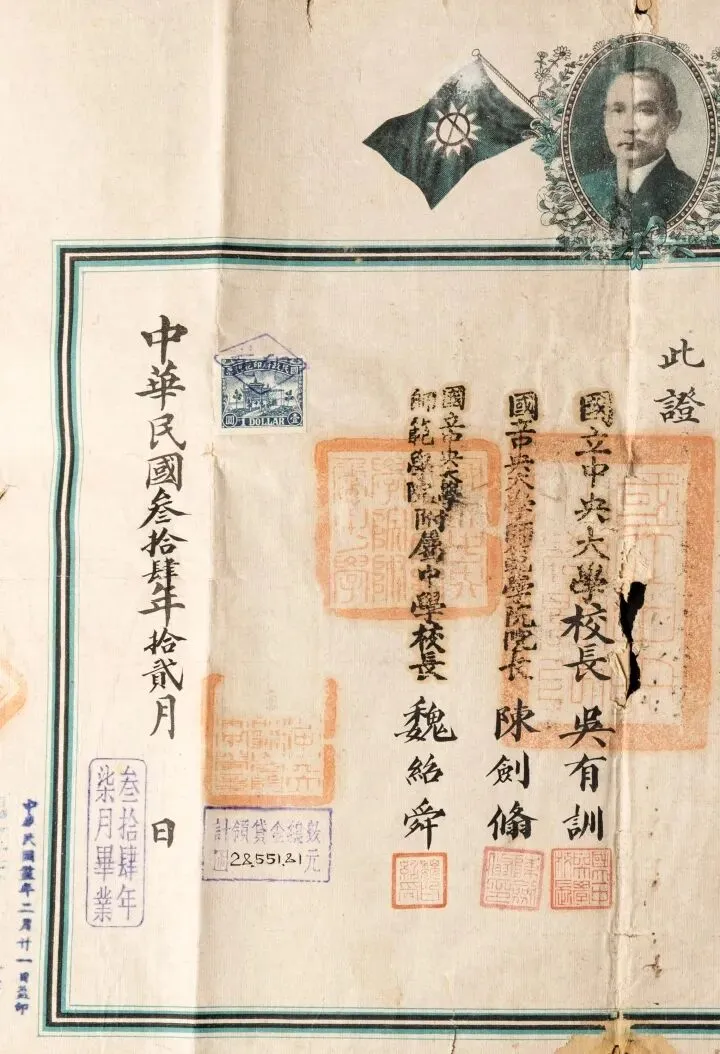 此證
國立中央大學校長 吳有訓
國立中央大學師範學院院長 陳劍脩
國立中央大學
師範學院附屬中學校長 魏紹舜
國民政府印花税票
壹 1 DOLLAR 圓
計領貸金總數
28551.81元
中華民國叁拾肆年拾貳月 日
叁拾肆年
柒月畢業